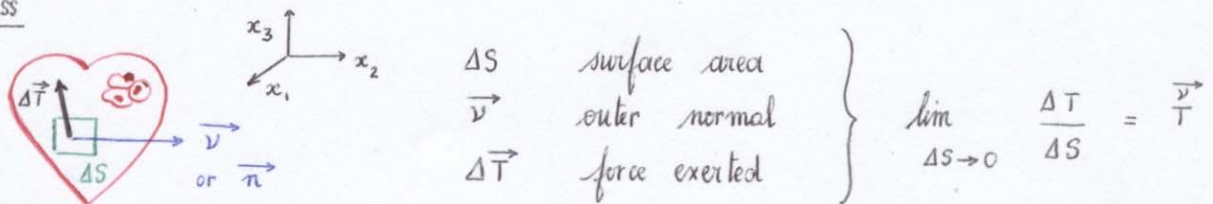 ss
x₃
x₂
x₁
ΔT⃗
ΔS
ν⃗
or n⃗
ΔS surface area
ν⃗ outer normal
ΔT⃗ force exerted
lim ΔS→0 ΔT/ΔS = ν⃗/T